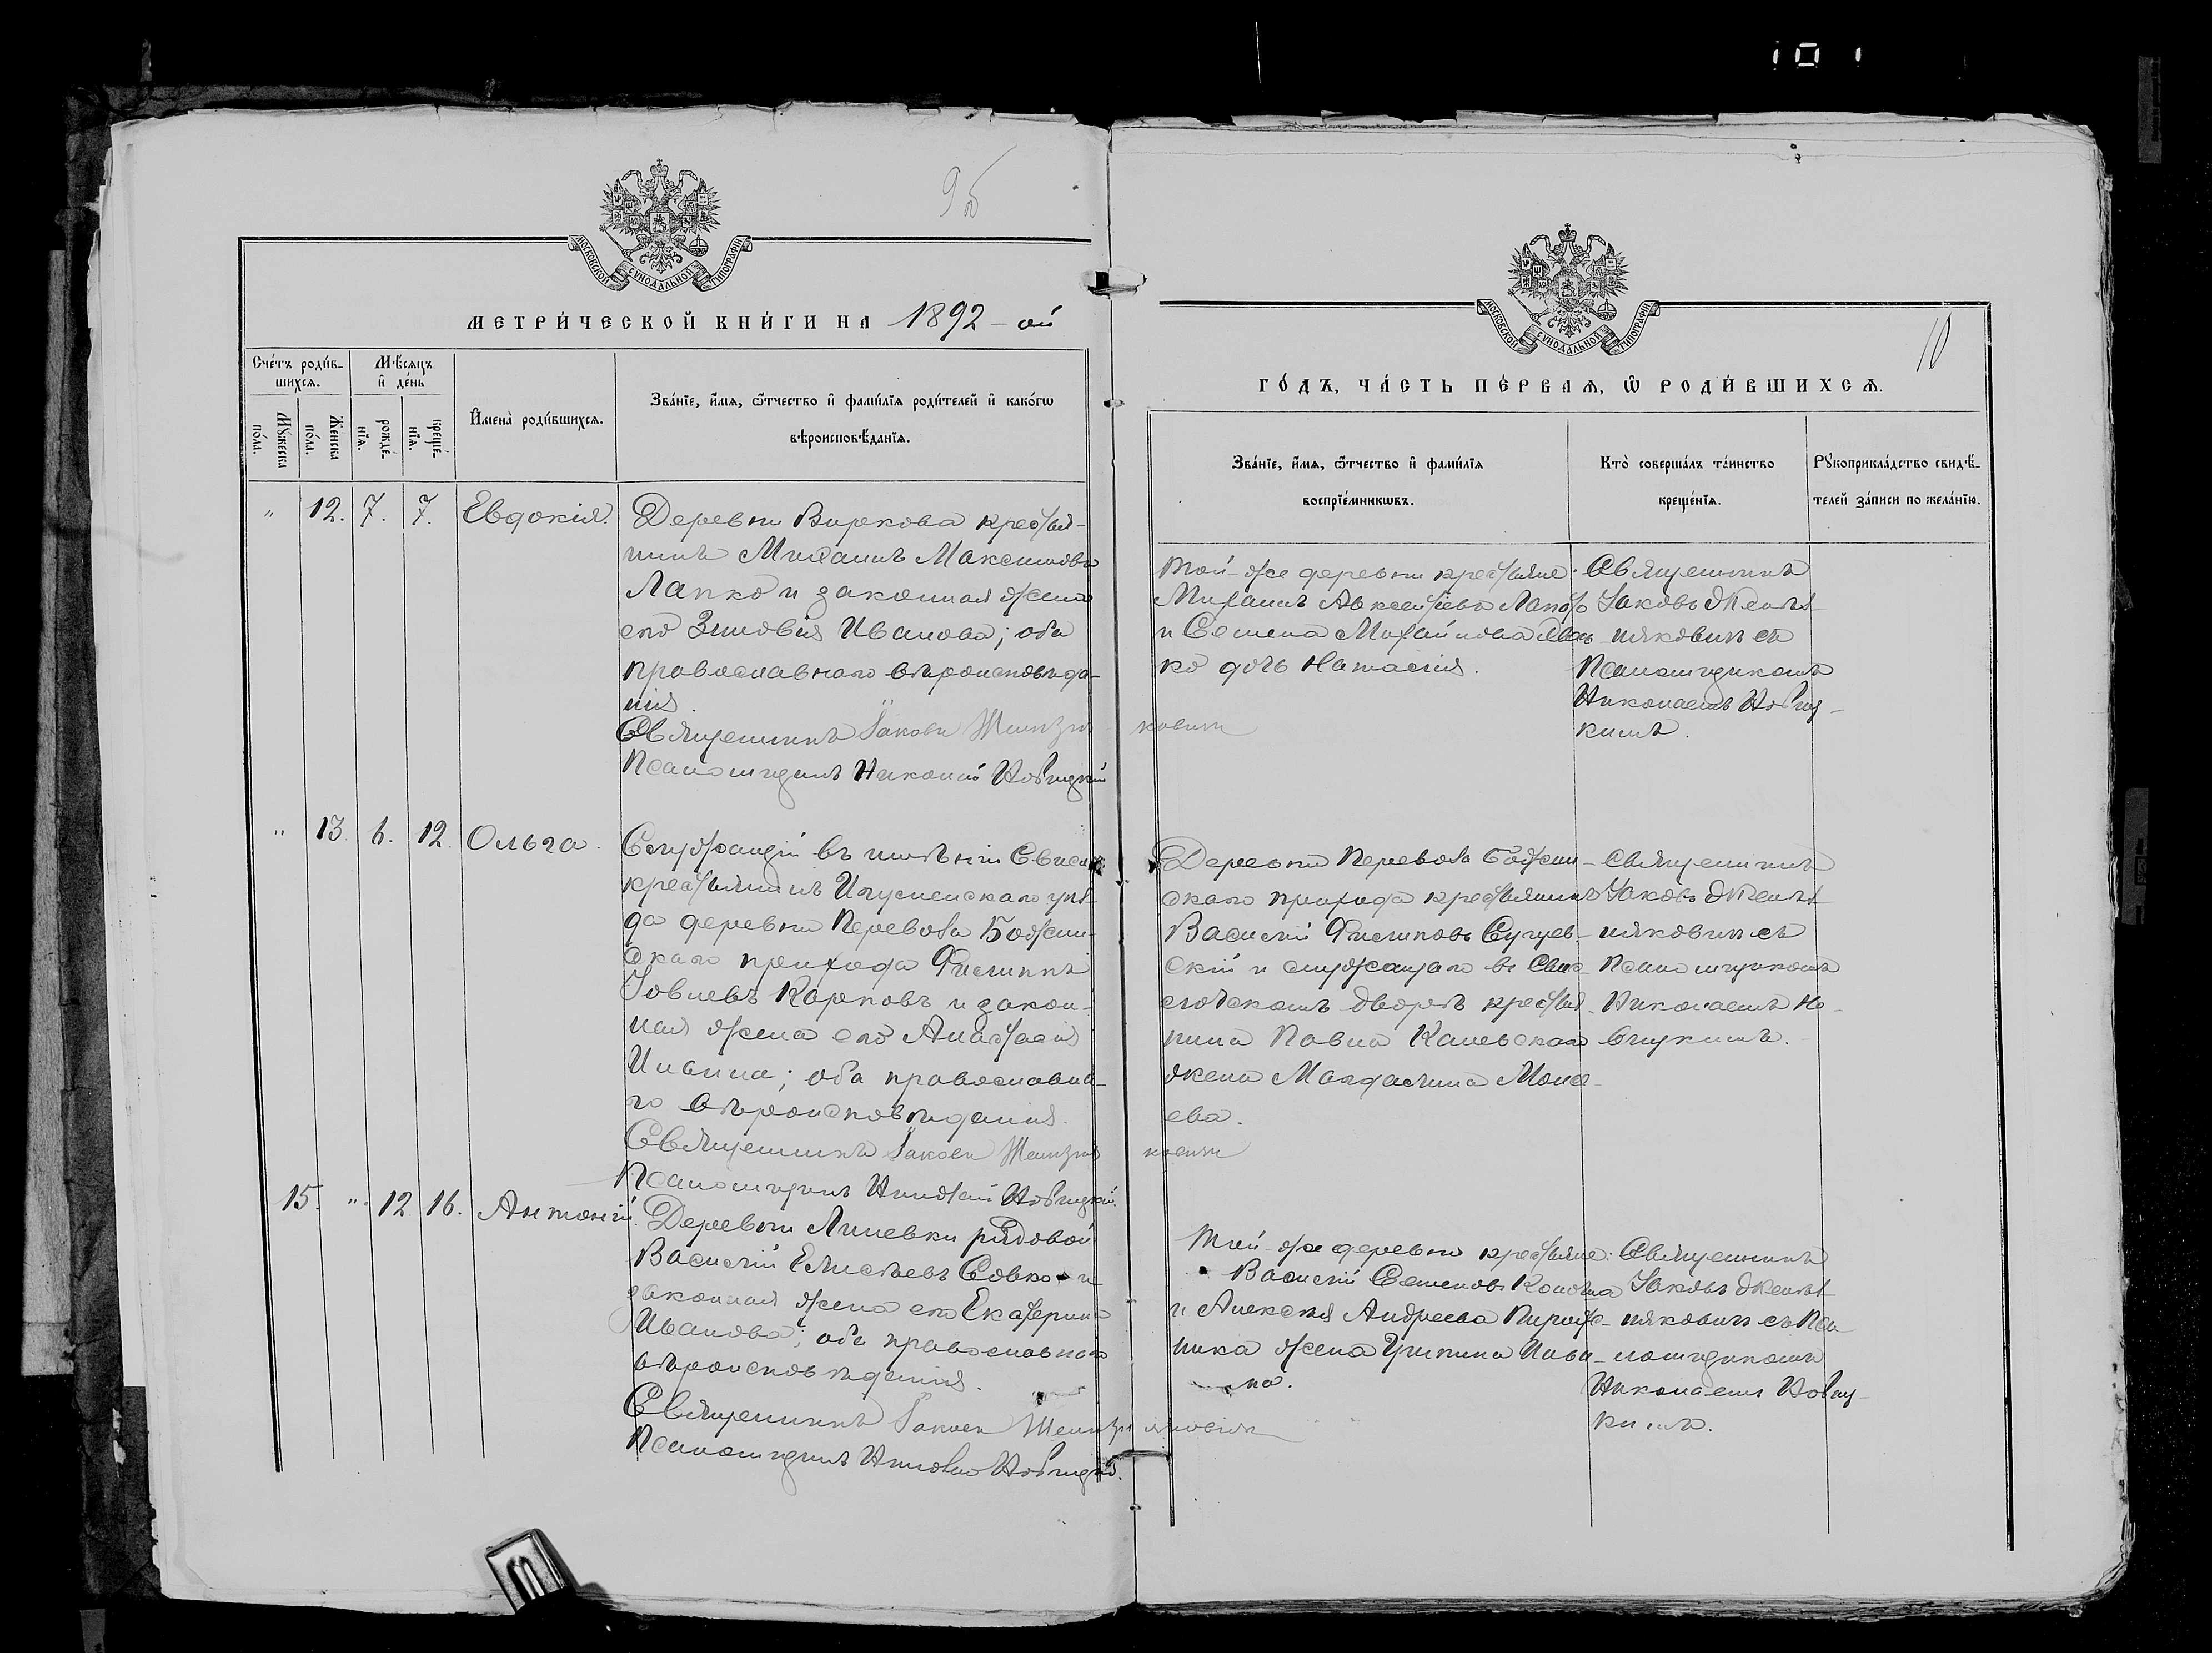 101
9б
МОСКОВСКОЙ СУНОДАЛЬНОЙ ТИПОГРАФІИ
МЕТРИ́ЧЕСКОЙ КНИ́ГИ НА 1892-ой
Сче́тъ роди́в-
шихсѧ.
Мѣ́сѧцъ
и҆ де́нь
Мꙋжеска
по́ла.
Же́нска
по́ла.
рожде́-
нїѧ.
креще́-
нїѧ.
И҆мена̀ роди́вшихсѧ.
Зва́нїе, и҆́мѧ, ѻ҆́тчество и҆ фами́лїѧ роди́телей и҆ како́гѡ
вѣроисповѣ́данїѧ.
" 12. 7. 7. Евдокія.
Деревни Виркова крестья-
нинъ Михаилъ Максимовъ
Лапко и законная жена
его Зиновія Иванова; оба
православнаго вѣроисповѣда-
нія.
Священникъ Іаковъ
Псаломщикъ Николай Новицкій
" 13. 6. 12. Ольга.
Служащій въ имѣніи
крестьянинъ Игуменскаго уѣз-
да деревни Перевоза Божин-
скаго прихода Филиппъ
Іовлевъ Карповъ и закон-
ная жена его Анастасія
Ильина; оба православна-
го вѣроисповѣданія.
Священникъ Іаковъ
Псаломщикъ Николай Новицкій.
15. " 12. 16. Антоній.
Деревни Лишевки рядовой
Василій Елисѣевъ Совко и
законная жена его Екатерина
Иванова; оба православнаго
вѣроисповѣданія.
Священникъ Іаковъ
Псаломщикъ Николай Новицкій.
МОСКОВСКОЙ СУНОДАЛЬНОЙ ТИПОГРАФІИ
10
ГО́ДЪ, ЧА́СТЬ ПЕ́РВАѦ, Ѡ҆ РОДИ́ВШИХСѦ.
Зва́нїе, и҆́мѧ, ѻ҆́тчество и҆ фами́лїѧ
воспрїе́мникѡвъ.
Кто̀ соверша́лъ та́инство
креще́нїѧ.
Рꙋкоприкла́дство свидѣ́-
телей за́писи по жела́нїю.
Той-же деревни крестьяне:
Михаилъ Авксентіевъ Лапко
и Семена Михайлова Лап-
ко дочь Наталія.
Священникъ
Іаковъ
съ
Псаломщикомъ
Николаемъ Новиц-
кимъ.
Деревни Перевоза Божин-
скаго прихода крестьянинъ
Василій Филиповъ
скій и служащаго въ
дворѣ крестья-
нина Павла
жена Магдалина Моисе-
ева.
Священникъ
Іаковъ
съ
Псаломщикомъ
Николаемъ Но-
вицкимъ.
Той-же деревни крестьяне:
Василій Семеновъ
и Алексѣя Андреева
жена Ульи-
на.
Священникъ
Іаковъ
съ Пса-
ломщикомъ
Николаемъ Новиц-
кимъ.